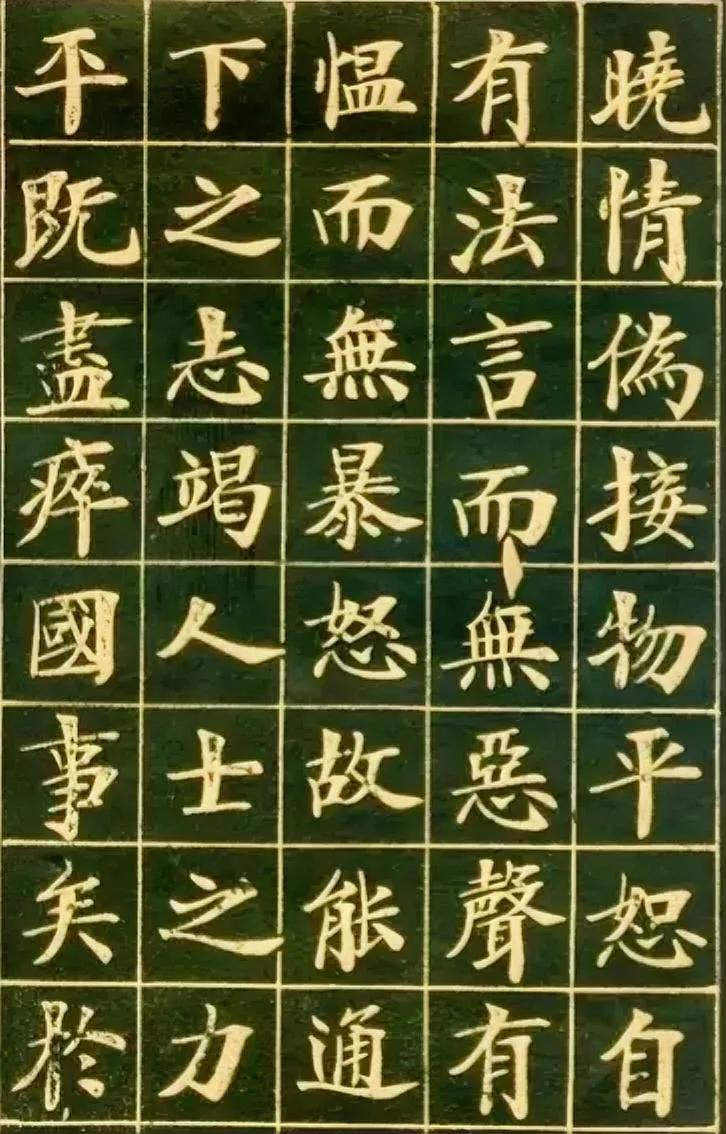 曉情偽接物平恕自
有法言而無惡聲有
愠而無暴怒故能通
下之志竭人士之力
平既盡瘁國事矣於